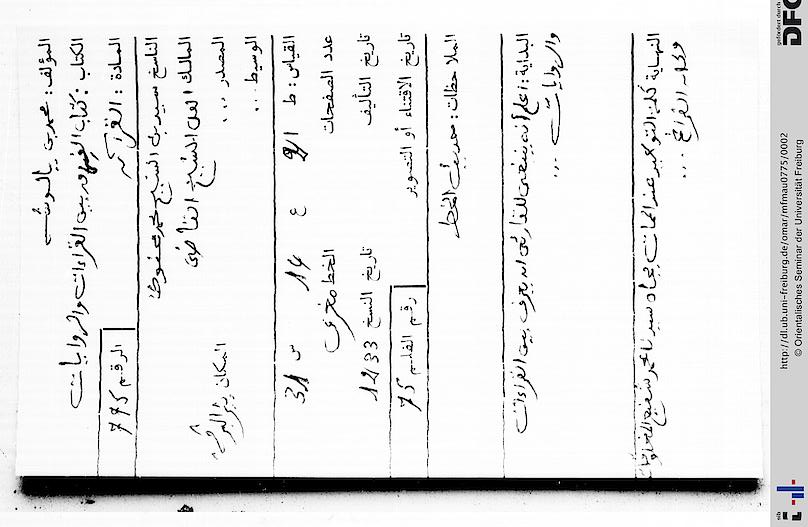 المؤلف: محمد بن يالوشه
الكتاب: كتاب الفرق بين القراءات والروايات
المادة: القرآن الرقم 775
الناسخ سيد بن الشيخ محمد محفوظ
المالك اهل الشيخ القاضي
المصدر ... المكان
الوسيط ...
القياس: ط 21 ع 14 س 31
عدد الصفحات الخط مغربي
تاريخ التأليف تاريخ النسخ 1233
تاريخ الاقتناء أو التصوير رقم الفلم 75
الملاحظات: حديث الخط
البداية: اعلم أنه ينبغي للقارئ أن يعرف بين القراءات
والروايات ...
النهاية عند الممات بجاه سيدنا محمد شفيع
وكان الفراغ ...
http://dl.ub.uni-freiburg.de/omar/mfmau0775/0002
© Orientalisches Seminar der Universität Freiburg
gefördert durch
DFG